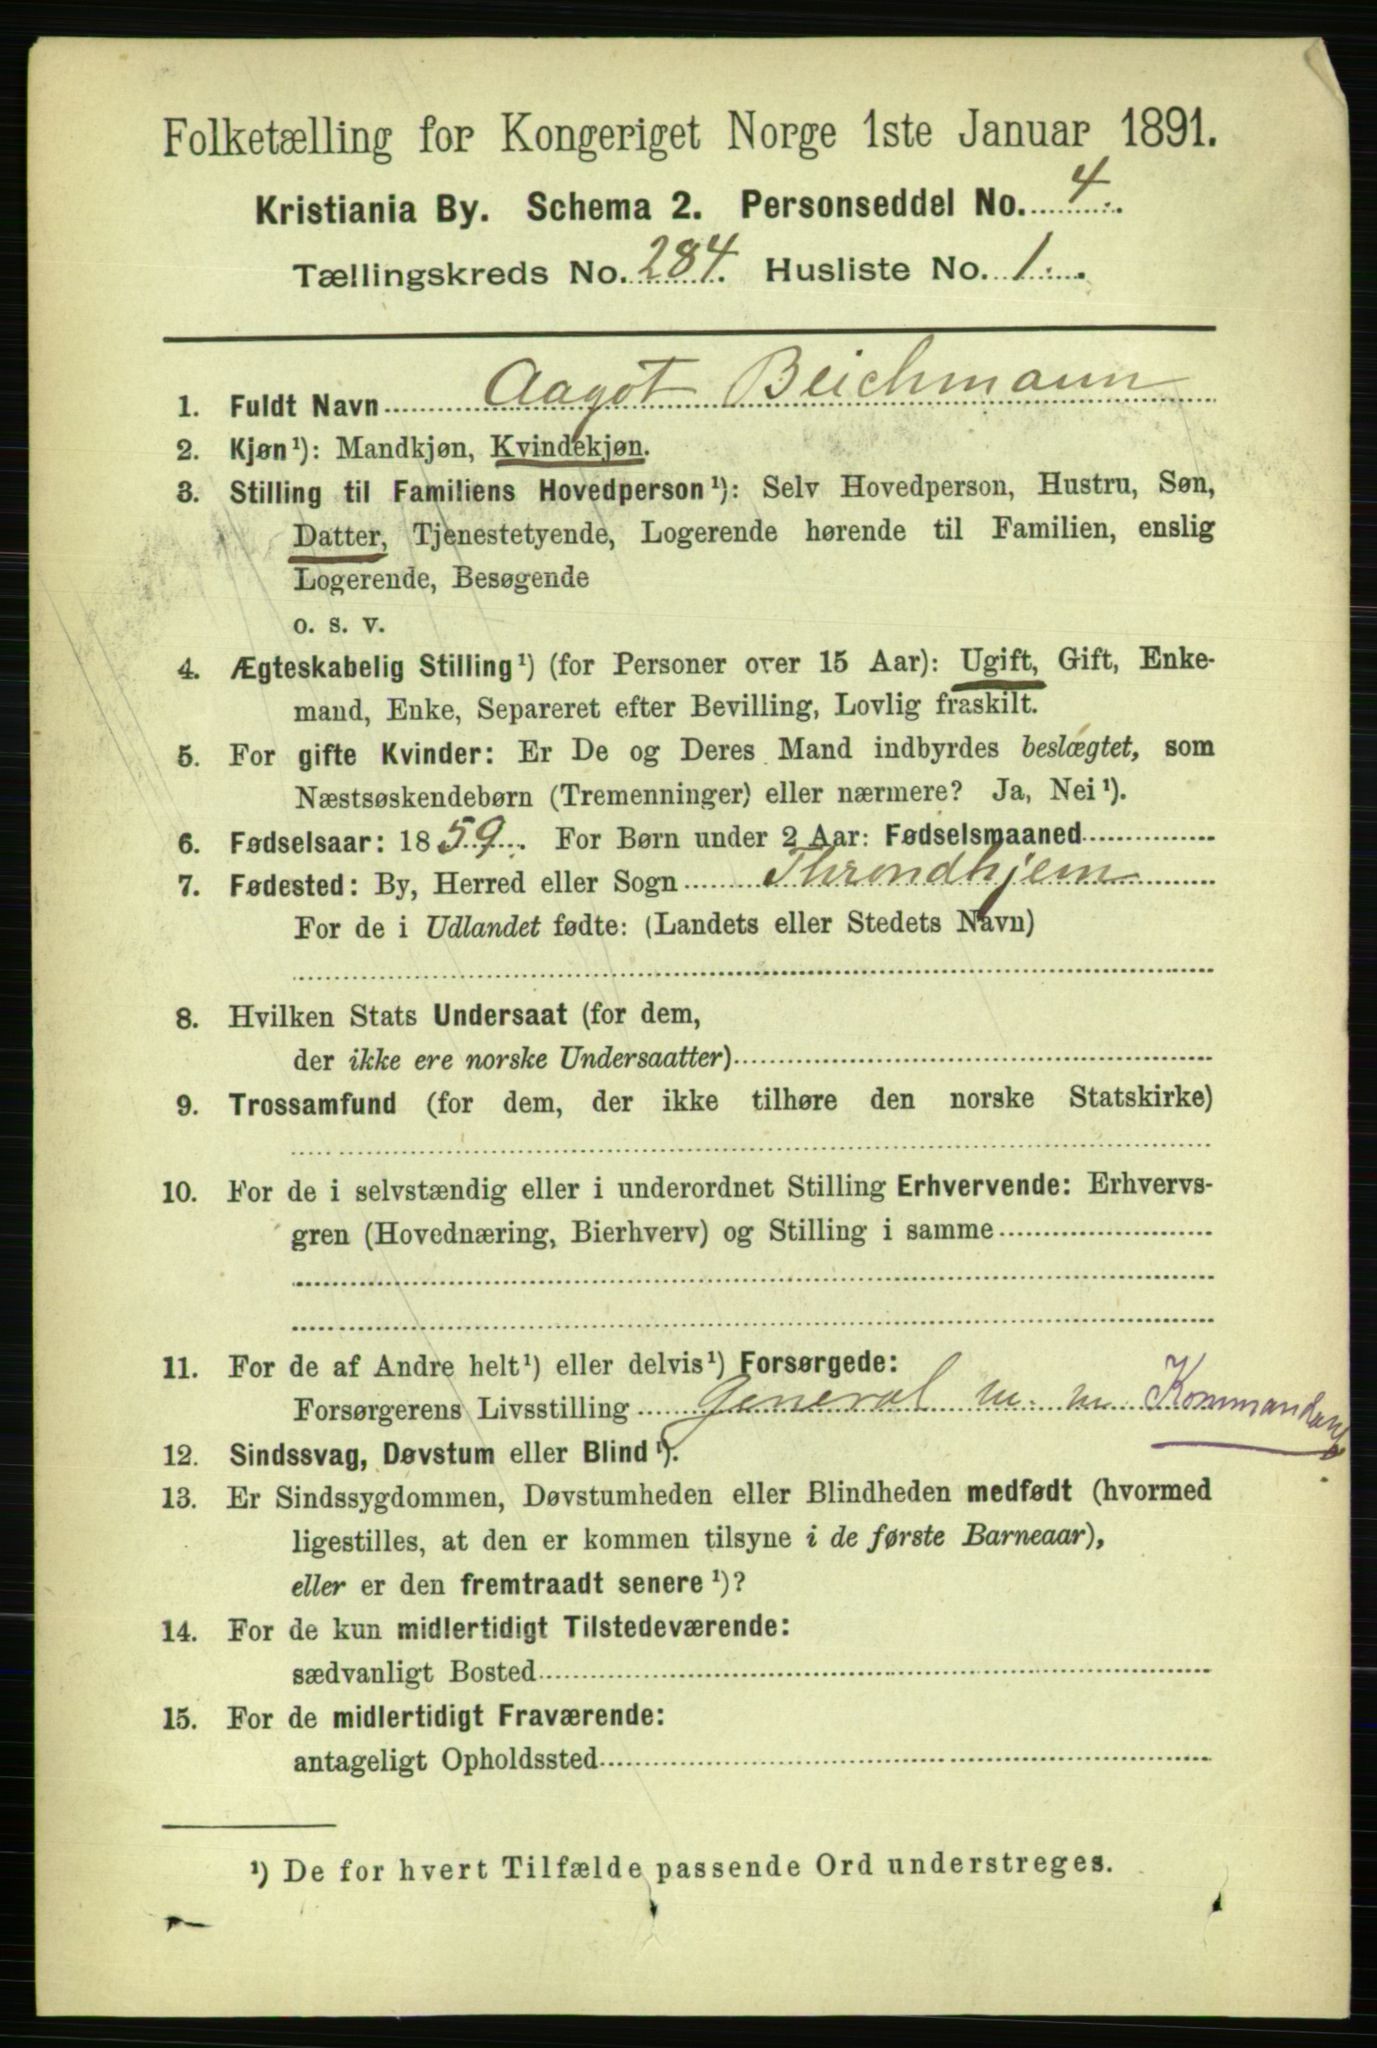 Folketælling for Kongeriget Norge 1ste Januar 1891.
Kristiania By. Schema 2. Personseddel No. 4.
Tællingskreds No. 284. Husliste No. 1.
1. Fuldt Navn Aagot Beichmann
2. Kjøn¹): Mandkjøn, Kvindekjøn.
3. Stilling til Familiens Hovedperson¹): Selv Hovedperson, Hustru, Søn,
Datter, Tjenestetyende, Logerende hørende til Familien, enslig
Logerende, Besøgende
o. s. v.
4. Ægteskabelig Stilling¹) (for Personer over 15 Aar): Ugift, Gift, Enke-
mand, Enke, Separeret efter Bevilling, Lovlig fraskilt.
5. For gifte Kvinder: Er De og Deres Mand indbyrdes beslægtet, som
Næstsøskendebørn (Tremenninger) eller nærmere? Ja, Nei¹).
6. Fødselsaar: 1859. For Børn under 2 Aar: Fødselsmaaned
7. Fødested: By, Herred eller Sogn Throndhjem
For de i Udlandet fødte: (Landets eller Stedets Navn)
8. Hvilken Stats Undersaat (for dem,
der ikke ere norske Undersaatter)
9. Trossamfund (for dem, der ikke tilhøre den norske Statskirke)
10. For de i selvstændig eller i underordnet Stilling Erhvervende: Erhvervs-
gren (Hovednæring, Bierhverv) og Stilling i samme
11. For de af Andre helt¹) eller delvis¹) Forsørgede:
Forsørgerens Livsstilling General m. m. Kommandant
12. Sindssvag, Døvstum eller Blind¹).
13. Er Sindssygdommen, Døvstumheden eller Blindheden medfødt (hvormed
ligestilles, at den er kommen tilsyne i de første Barneaar),
eller er den fremtraadt senere¹)?
14. For de kun midlertidigt Tilstedeværende:
sædvanligt Bosted
15. For de midlertidigt Fraværende:
antageligt Opholdssted
¹) De for hvert Tilfælde passende Ord understreges.